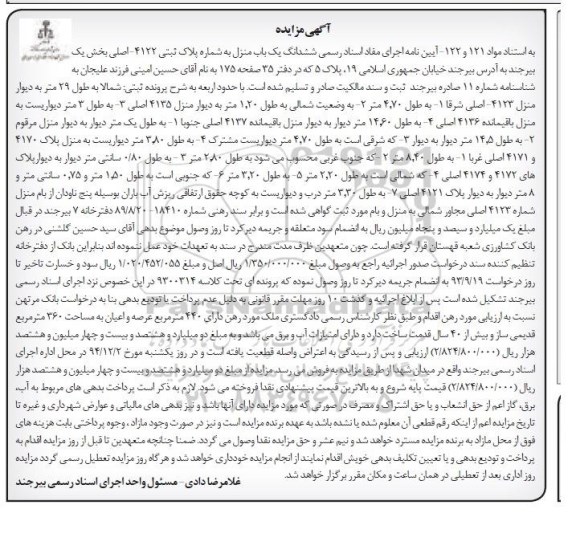 آگهی مزایده
به استناد مواد ۱۲۱ و ۱۲۲- آیین نامه اجرای مفاد اسناد رسمی ششدانگ یک باب منزل به شماره پلاک ثبتی ۴۱۲۲- اصلی بخش یک
بیرجند به آدرس بیرجند خیابان جمهوری اسلامی ۱۹، پلاک ۵ که در دفتر ۳۵ صفحه ۱۷۵ به نام آقای حسین امینی فرزند علیجان به
شناسنامه شماره ۱۱ صادره بیرجند ثبت و سند مالکیت صادر و تسلیم شده است. با حدود اربعه به شرح پرونده ثبتی: شمالا به طول ۲۹ متر به دیوار
منزل ۴۱۲۳- اصلی شرقا ۱- به طول ۴,۷۰ متر ۲- به وضعیت شمالی به طول ۱,۲۰ متر به دیوار منزل ۴۱۳۵ اصلی ۳- به طول ۳ متر دیواریست به
منزل باقیمانده ۴۱۳۶ اصلی ۴- به طول ۱۴,۶۰ متر دیوار به دیوار منزل باقیمانده ۴۱۳۷ اصلی جنوبا ۱- به طول یک متر دیوار به دیوار منزل مرقوم
۲- به طول ۱۴,۵ متر دیوار به دیوار ۳- که شرقی است به طول ۴,۷۰ متر دیواریست مشترک ۴- به طول ۳,۸۰ متر دیواریست به منزل پلاک ۴۱۷۰
و ۴۱۷۱ اصلی غربا ۱- به طول ۸,۴۰ متر ۲- که جنوب غربی محسوب می شود به طول ۲,۸۰ متر ۳- به طول ۰/۸۰ سانتی متر دیوار به دیوار پلاک
های ۴۱۷۲ و ۴۱۷۴ اصلی ۴- که شمالی است به طول ۲,۲۰ متر ۵- به طول ۳,۲۰ متر ۶- که جنوبی است به طول ۱,۵۰ متر و ۰,۷۵ سانتی متر و
۸ متر دیوار به دیوار پلاک ۴۱۲۱ اصلی ۷- به طول ۳,۳۰ متر درب و دیواریست به کوچه حقوق ارتفاقی ریزش آب باران بوسیله پنج ناودان از بام منزل
شماره ۴۱۲۳ اصلی مجاور شمالی به منزل و بام مورد ثبت گواهی شده است و برابر سند رهنی شماره ۱۸۴۱۰- ۸۹/۸/۲۰ دفترخانه ۷ بیرجند در قبال
مبلغ یک میلیارد و سیصد و پنجاه میلیون ریال به انضمام سود متعلقه و جریمه دیرکرد تا روز وصول موضوع بدهی آقای سید حسین گلشنی در رهن
بانک کشاورزی شعبه قهستان قرار گرفته است. چون متعهدین ظرف مدت مندرج در سند به تعهدات خود عمل ننموده اند بنابراین بانک از دفترخانه
تنظیم کننده سند درخواست صدور اجرائیه راجع به وصول مبلغ ۱/۳۵۰/۰۰۰/۰۰۰ ریال اصل و مبلغ ۱/۰۲۰/۴۵۲/۰۵۵ ریال سود و خسارت تاخیر تا
روز درخواست ۹۳/۹/۱۹ به انضمام جریمه دیرکرد تا روز وصول نموده که پرونده ای تحت کلاسه ۹۳۰۰۳۱۴ در این خصوص نزد اجرای اسناد رسمی
بیرجند تشکیل شده است پس از ابلاغ اجرائیه و گذشت ۱۰ روز مهلت مقرر قانونی به دلیل عدم پرداخت یا تودیع بدهی بنا به درخواست بانک مرتهن
نسبت به ارزیابی مورد رهن اقدام و طبق نظر کارشناس رسمی دادگستری ملک مورد رهن دارای ۴۴۰ مترمربع عرصه و اعیان به مساحت ۳۶۰ مترمربع
قدیمی ساز و بیش از ۴۰ سال قدمت ساخت دارد و دارای امتیازات آب و برق می باشد و به مبلغ دو میلیارد و هشتصد و بیست و چهار میلیون و هشتصد
هزار ریال (۲/۸۲۴/۸۰۰/۰۰۰) ارزیابی و پس از رسیدگی به اعتراض واصله قطعیت یافته است و در روز یکشنبه مورخ ۹۴/۱۲/۲ در محل اداره اجرای
اسناد رسمی بیرجند واقع در میدان شهدا از طریق مزایده به فروش می رسد. مزایده از مبلغ دو میلیارد و هشتصد و بیست و چهار میلیون و هشتصد هزار
ریال (۲/۸۲۴/۸۰۰/۰۰۰) قیمت پایه شروع و به بالاترین قیمت پیشنهادی نقدا فروخته می شود. لازم به ذکر است پرداخت بدهی های مربوط به آب،
برق، گاز اعم از حق انشعاب و یا حق اشتراک و مصرف در صورتی که مورد مزایده دارای آنها باشد و نیز بدهی های مالیاتی و عوارض شهرداری و غیره تا
تاریخ مزایده اعم از اینکه رقم قطعی آن معلوم شده یا نشده باشد به عهده برنده مزایده است و نیز در صورت وجود مازاد، وجوه پرداختی بابت هزینه های
فوق از محل مازاد به برنده مزایده مسترد خواهد شد و نیم عشر و حق مزایده نقدا وصول می گردد. ضمنا چنانچه متعهدین تا قبل از روز مزایده اقدام به
پرداخت و تودیع بدهی و یا تعیین تکلیف بدهی خویش اقدام نمایند از انجام مزایده خودداری خواهد شد و هرگاه روز مزایده تعطیل رسمی گردد مزایده
روز اداری بعد از تعطیلی در همان ساعت و مکان مقرر برگزار خواهد شد.
غلامرضا دادی- مسئول واحد اجرای اسناد رسمی بیرجند